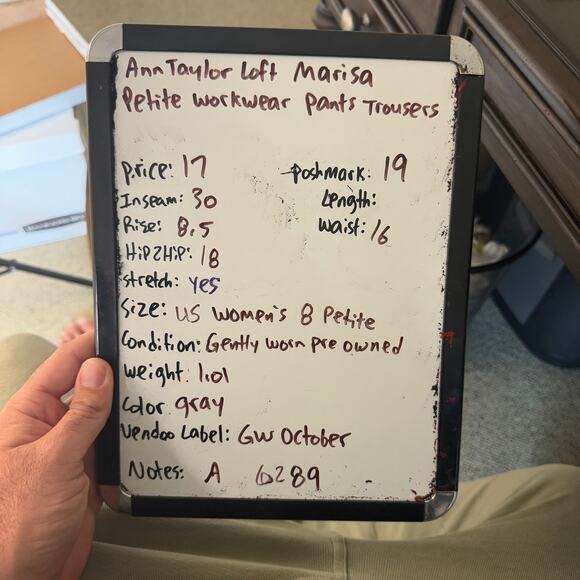 AnnTaylor Loft Marisa
Petite workwear pants Trousers
price: 17
poshmark: 19
Inseam: 30
Length:
Rise: 8.5
waist: 16
Hip2Hip: 18
stretch: yes
Size: US Women's 8 Petite
Condition: Gently worn pre owned
weight: 1.01
Color gray
Vendoo Label: GW October
Notes: A 6289